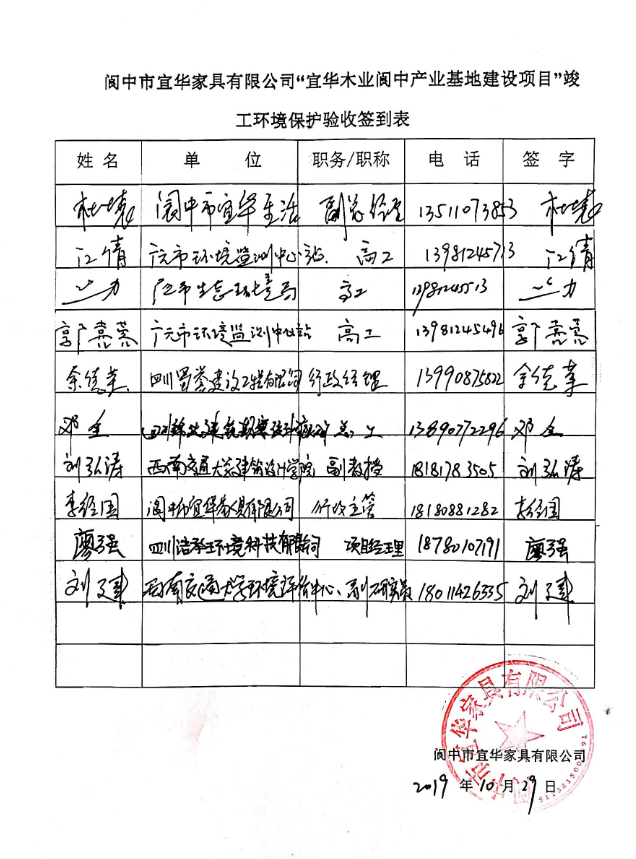 阆中市宜华家具有限公司“宜华木业阆中产业基地建设项目”竣
工环境保护验收签到表
姓 名 单 位 职务/职称 电 话 签 字
阆中市宜华生活 副总经理 13511073853
江倩 广元市环境监测中心站. 高工 江倩
广元市生态环境局 高工
郭熹蓉 广元市环境监测中心站 高工 13981245496 郭熹蓉
余德 四川蜀誉建设工程有限公司 行政经理 13990875822 余德
邓全 总工 13890772296 邓全
刘弘涛 西南交通大学建筑设计学院 副教授 18181783505 刘弘涛
李经国 阆中市宜华家具有限公司 行政主管 18180881282 李经国
廖强 四川洁承环境科技有限公司 项目经理 18780107191 廖强
刘建 西南交通大学环境评价中心、副研究员 18011426335 刘建
阆中市宜华家具有限公司
阆中市宜华家具有限公司
2019 年 10 月 29 日